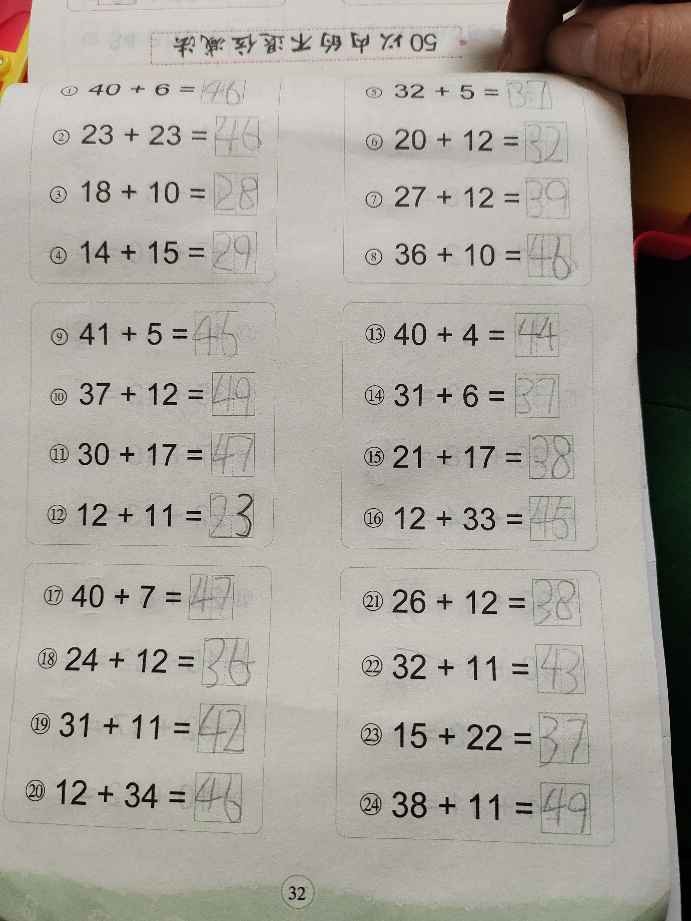 50以内的不退位减法
① 40 + 6 = 46
② 23 + 23 = 46
③ 18 + 10 = 28
④ 14 + 15 = 29
⑤ 32 + 5 = 37
⑥ 20 + 12 = 32
⑦ 27 + 12 = 39
⑧ 36 + 10 = 46
⑨ 41 + 5 = 46
⑩ 37 + 12 = 49
⑪ 30 + 17 = 47
⑫ 12 + 11 = 23
⑬ 40 + 4 = 44
⑭ 31 + 6 = 37
⑮ 21 + 17 = 38
⑯ 12 + 33 = 45
⑰ 40 + 7 = 47
⑱ 24 + 12 = 36
⑲ 31 + 11 = 42
⑳ 12 + 34 = 46
㉑ 26 + 12 = 38
㉒ 32 + 11 = 43
㉓ 15 + 22 = 37
㉔ 38 + 11 = 49
32